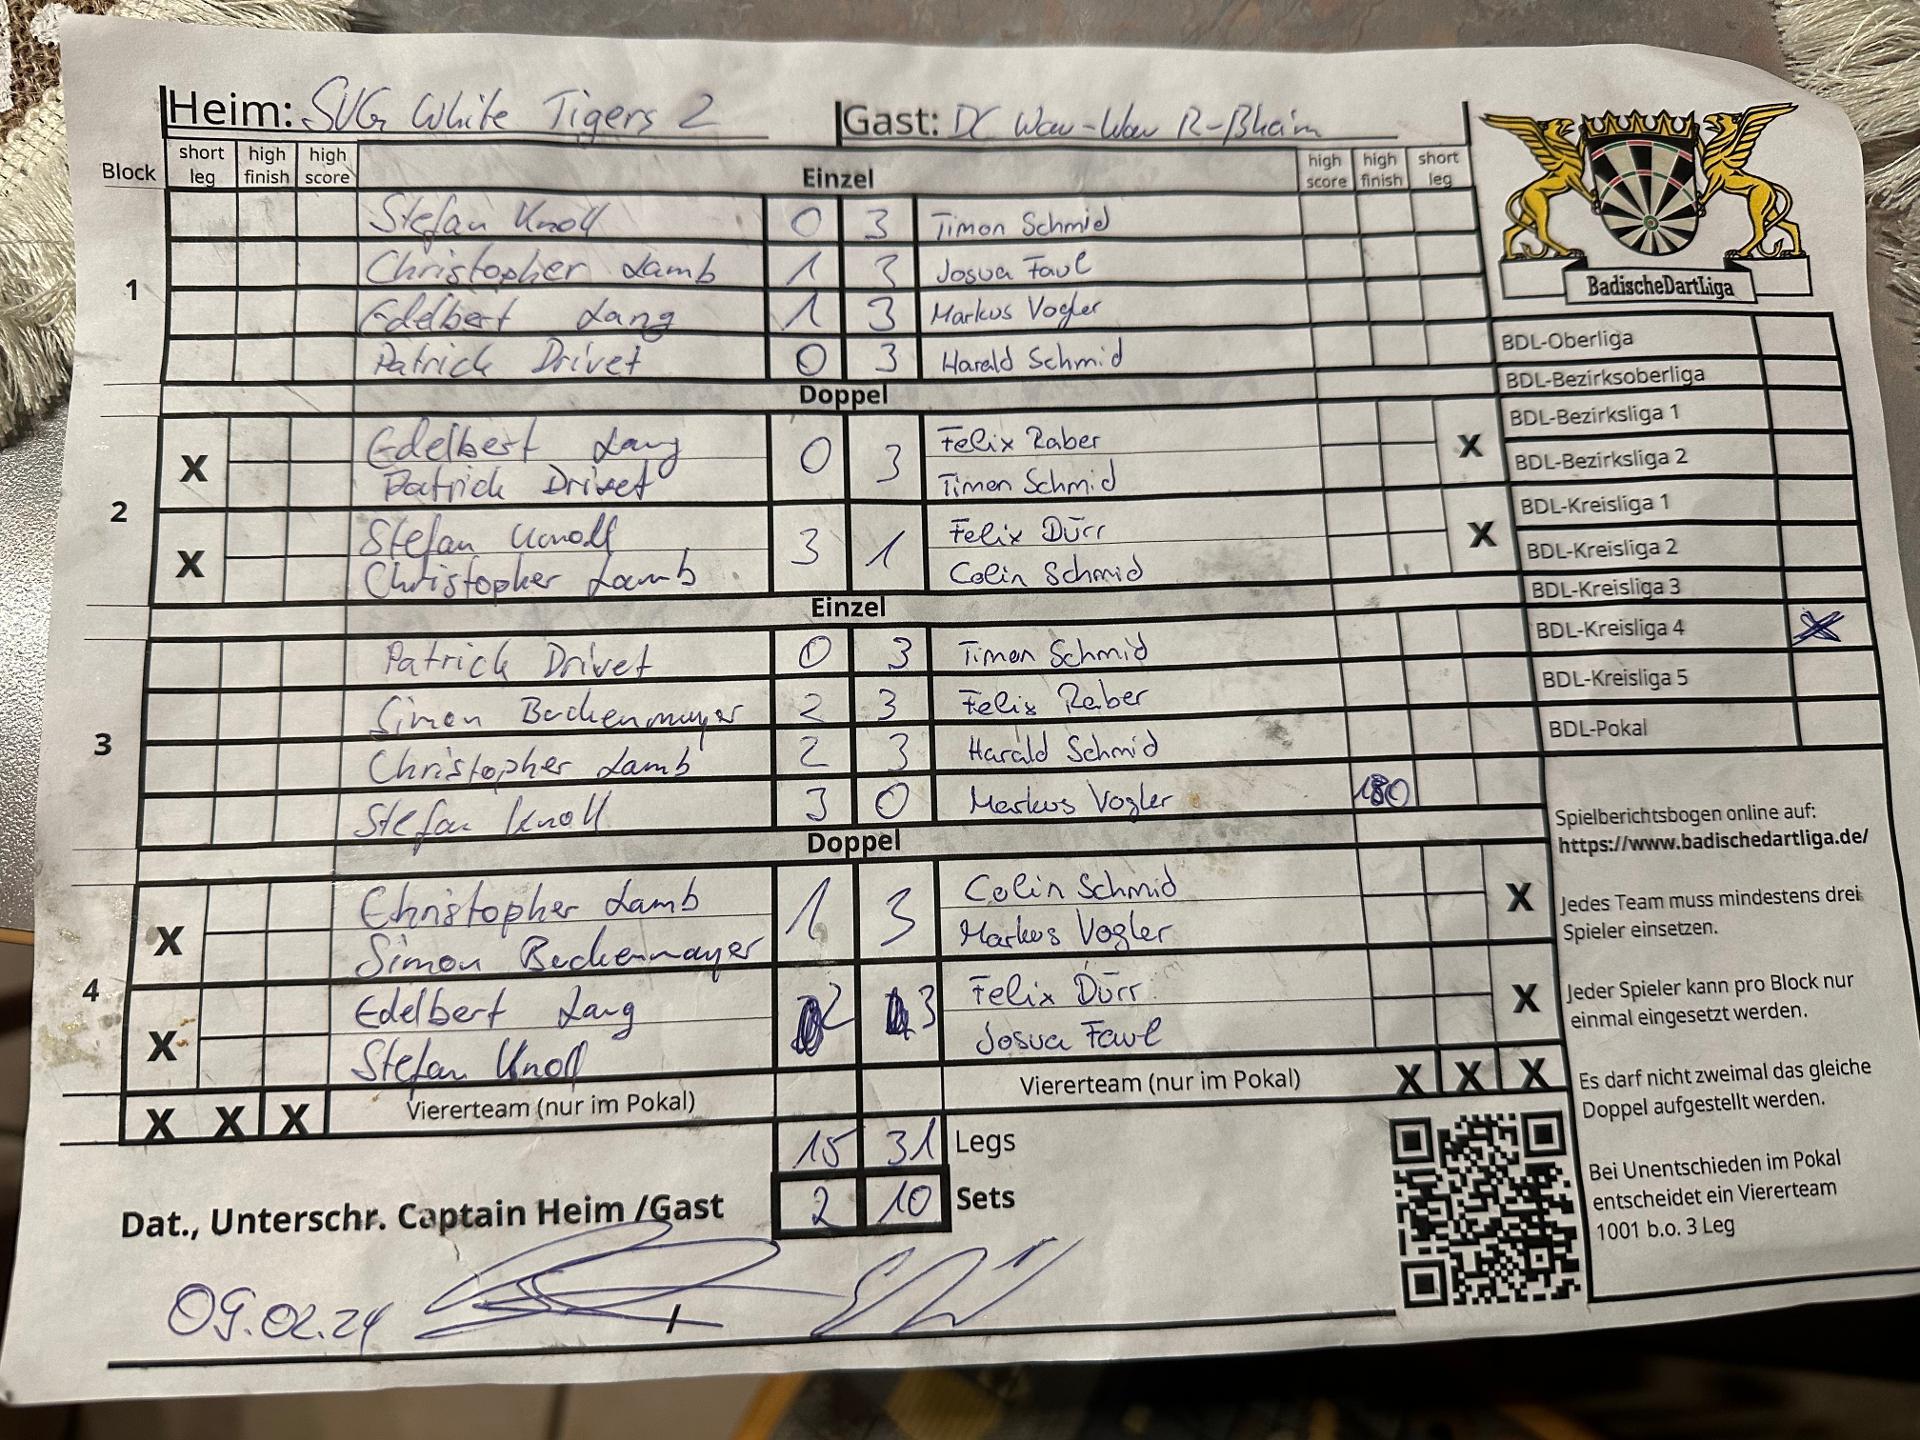 Heim: SVG White Tigers 2 Gast: DC Wau-Wau R-Bheim
Block short leg high finish high score Einzel high score high finish short leg
1
Stefan Knoll 0 3 Timon Schmid
Christopher Lamb 1 3 Josua Faul
Edelbert Lang 1 3 Markus Vogler
Patrick Drivet 0 3 Harald Schmid
Doppel
2
X Edelbert Lang 0 3 Felix Raber X
Patrick Drivet Timon Schmid
X Stefan Knoll 3 1 Felix Dürr X
Christopher Lamb Colin Schmid
Einzel
3
Patrick Drivet 0 3 Timon Schmid
Simon Beckenmayer 2 3 Felix Raber
Christopher Lamb 2 3 Harald Schmid
Stefan Knoll 3 0 Markus Vogler 180
Doppel
4
X Christopher Lamb 1 3 Colin Schmid X
Simon Beckenmayer Markus Vogler
X Edelbert Lang 2 3 Felix Dürr X
Stefan Knoll Josua Faul
X X X Viererteam (nur im Pokal) Viererteam (nur im Pokal) X X X
15 31 Legs
2 10 Sets
Dat., Unterschr. Captain Heim /Gast
09.02.24
BadischeDartLiga
BDL-Oberliga
BDL-Bezirksoberliga
BDL-Bezirksliga 1
BDL-Bezirksliga 2
BDL-Kreisliga 1
BDL-Kreisliga 2
BDL-Kreisliga 3
BDL-Kreisliga 4 X
BDL-Kreisliga 5
BDL-Pokal
Spielberichtsbogen online auf:
https://www.badischedartliga.de/
Jedes Team muss mindestens drei
Spieler einsetzen.
Jeder Spieler kann pro Block nur
einmal eingesetzt werden.
Es darf nicht zweimal das gleiche
Doppel aufgestellt werden.
Bei Unentschieden im Pokal
entscheidet ein Viererteam
1001 b.o. 3 Leg